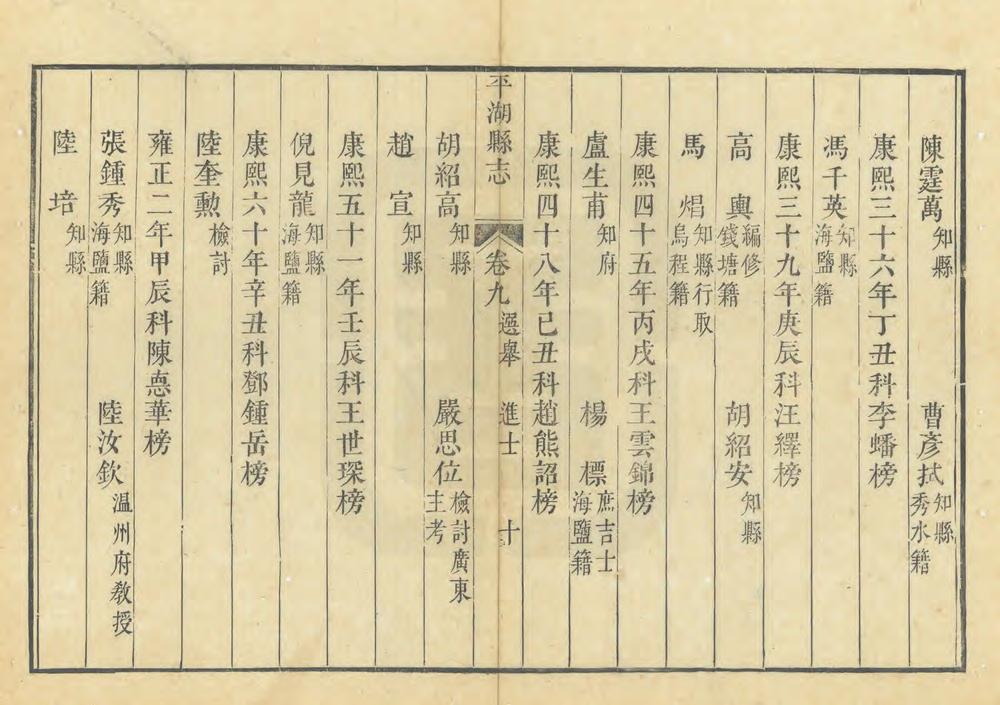 陳霆萬 知縣 曹彥拭 知縣 秀水籍
康熙三十六年丁丑科李蟠榜
馮千英 知縣 海鹽籍
康熙三十九年庚辰科汪繹榜
高輿 編修 錢塘籍 胡紹安 知縣
馬焻 知縣行取 烏程籍
康熙四十五年丙戌科王雲錦榜
盧生甫 知府 楊標 庶吉士 海鹽籍
康熙四十八年己丑科趙熊詔榜
平湖縣志 卷九 選舉 進士 十
胡紹高 知縣 嚴思位 檢討廣東主考
趙宣 知縣
康熙五十一年壬辰科王世琛榜
倪見龍 知縣 海鹽籍
康熙六十年辛丑科鄧鍾岳榜
陸奎勲 檢討
雍正二年甲辰科陳悳華榜
張鍾秀 知縣 海鹽籍 陸汝欽 温州府敎授
陸培 知縣